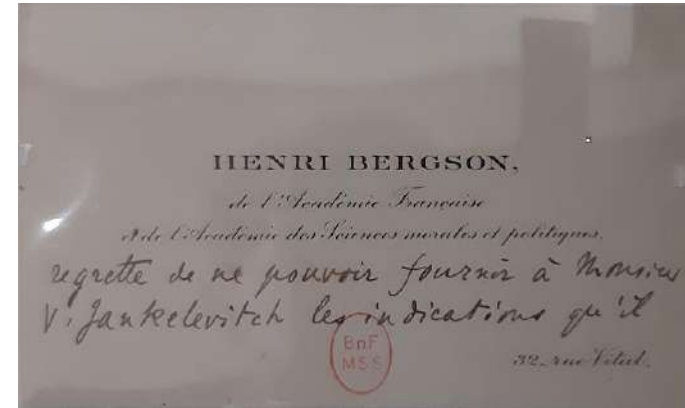 HENRI BERGSON,
de l'Académie Française
et de l'Académie des Sciences morales et politiques.
regrette de ne pouvoir fournir à Monsieur
V. Jankelevitch les indications qu'il
BnF
MSS
32, rue Vital.